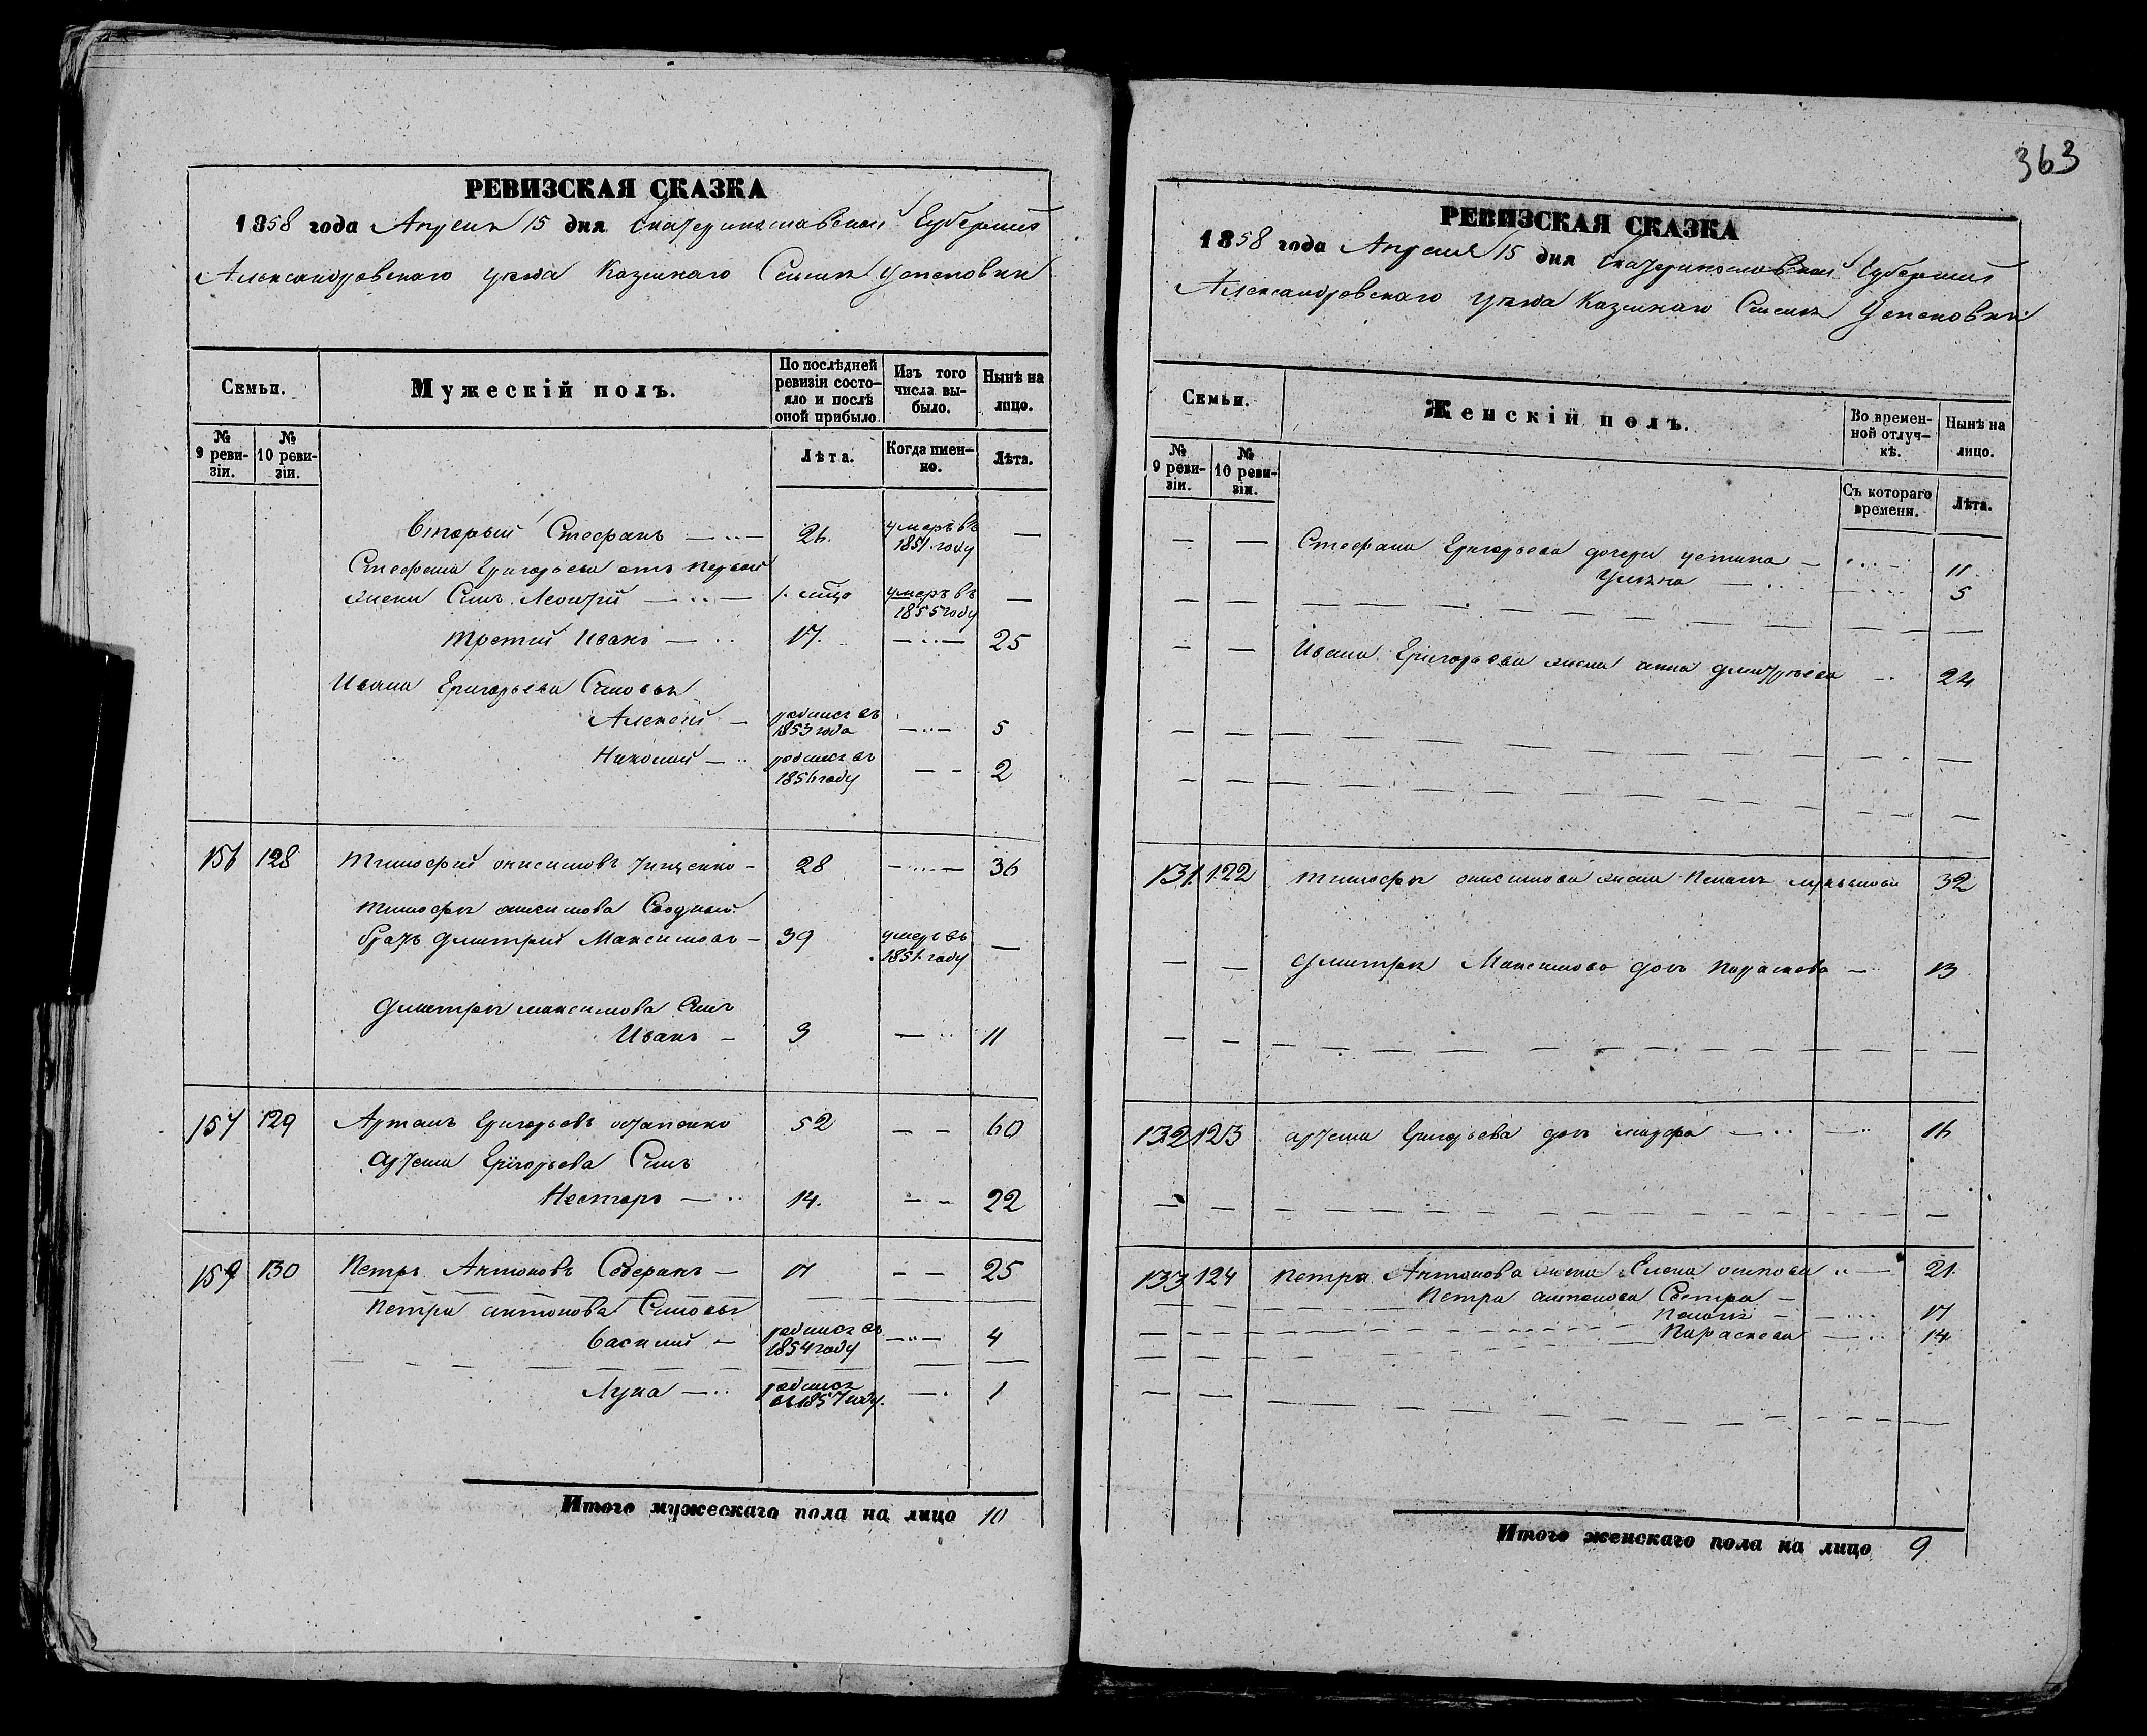 РЕВИЗСКАЯ СКАЗКА
1858 года Апреля 15 дня Екатеринославской Губернии
Александровскаго уезда Казеннаго Селенія Успеновки
Семьи.
Мужескій полъ.
По послѣдней ревизіи состо-
яло и послѣ оной прибыло.
Изъ того числа вы-
было.
Нынѣ на лицо.
№ 9 реви-
зіи.
№ 10 реви-
зіи.
Лѣта.
Когда имен-
но.
Лѣта.
Вторый Стефанъ — 26. умеръ въ 1851 году —
Стефана Григорьева отъ первой
жены Сынъ Леонтій — умеръ въ 1855 году —
Третій Иванъ — 17. — 25
Ивана Григорьева Сыновья
Алексей — родился въ 1853 года — 5
Николай — родился въ 1856 году — — 2
156 128 Тимофей онисимовъ Тищенко — 28 — 36
Тимофея онисимова Сводный
братъ Дмитрій Максимовъ — 39 умеръ въ 1851 году —
Дмитрія максимова Сынъ
Иванъ — 3 — 11
157 129 Артемъ Григорьевъ остапенко 52 — — 60
Артема Григорьева Сынъ
Несторъ — 14. — — 22
159 130 Петръ Антоновъ — 17 — — 25
Петра антонова Сыновья
Василий — родился въ 1854 году — 4
Лука — родился въ 1857 году. — 1
Итого мужескаго пола на лицо 10
363
РЕВИЗСКАЯ СКАЗКА
1858 года Апреля 15 дня Екатеринославской Губернии
Александровскаго уезда Казеннаго Селенія Успеновки
Семьи.
Женскій полъ.
Во времен-
ной отлуч-
кѣ.
Нынѣ на лицо.
№ 9 реви-
зіи.
№ 10 реви-
зіи.
Съ котораго времени.
Лѣта.
— — Стефана Григорьева дочери устина — — 11
Ульяна — — 5
— — Ивана Григорьева жена анна дмитріева 24
131. 122 Тимофея онисимова жена Пелагея 32
— — Дмитрія Максимова дочь Параскева — 13
132 123 артема Григорьева дочь марфа — — 16
133 124 Петра Антонова жена Елена — 21.
Петра антонова Сестры —
Пелагея — 17
Параскева — 14
Итого женскаго пола на лицо 9